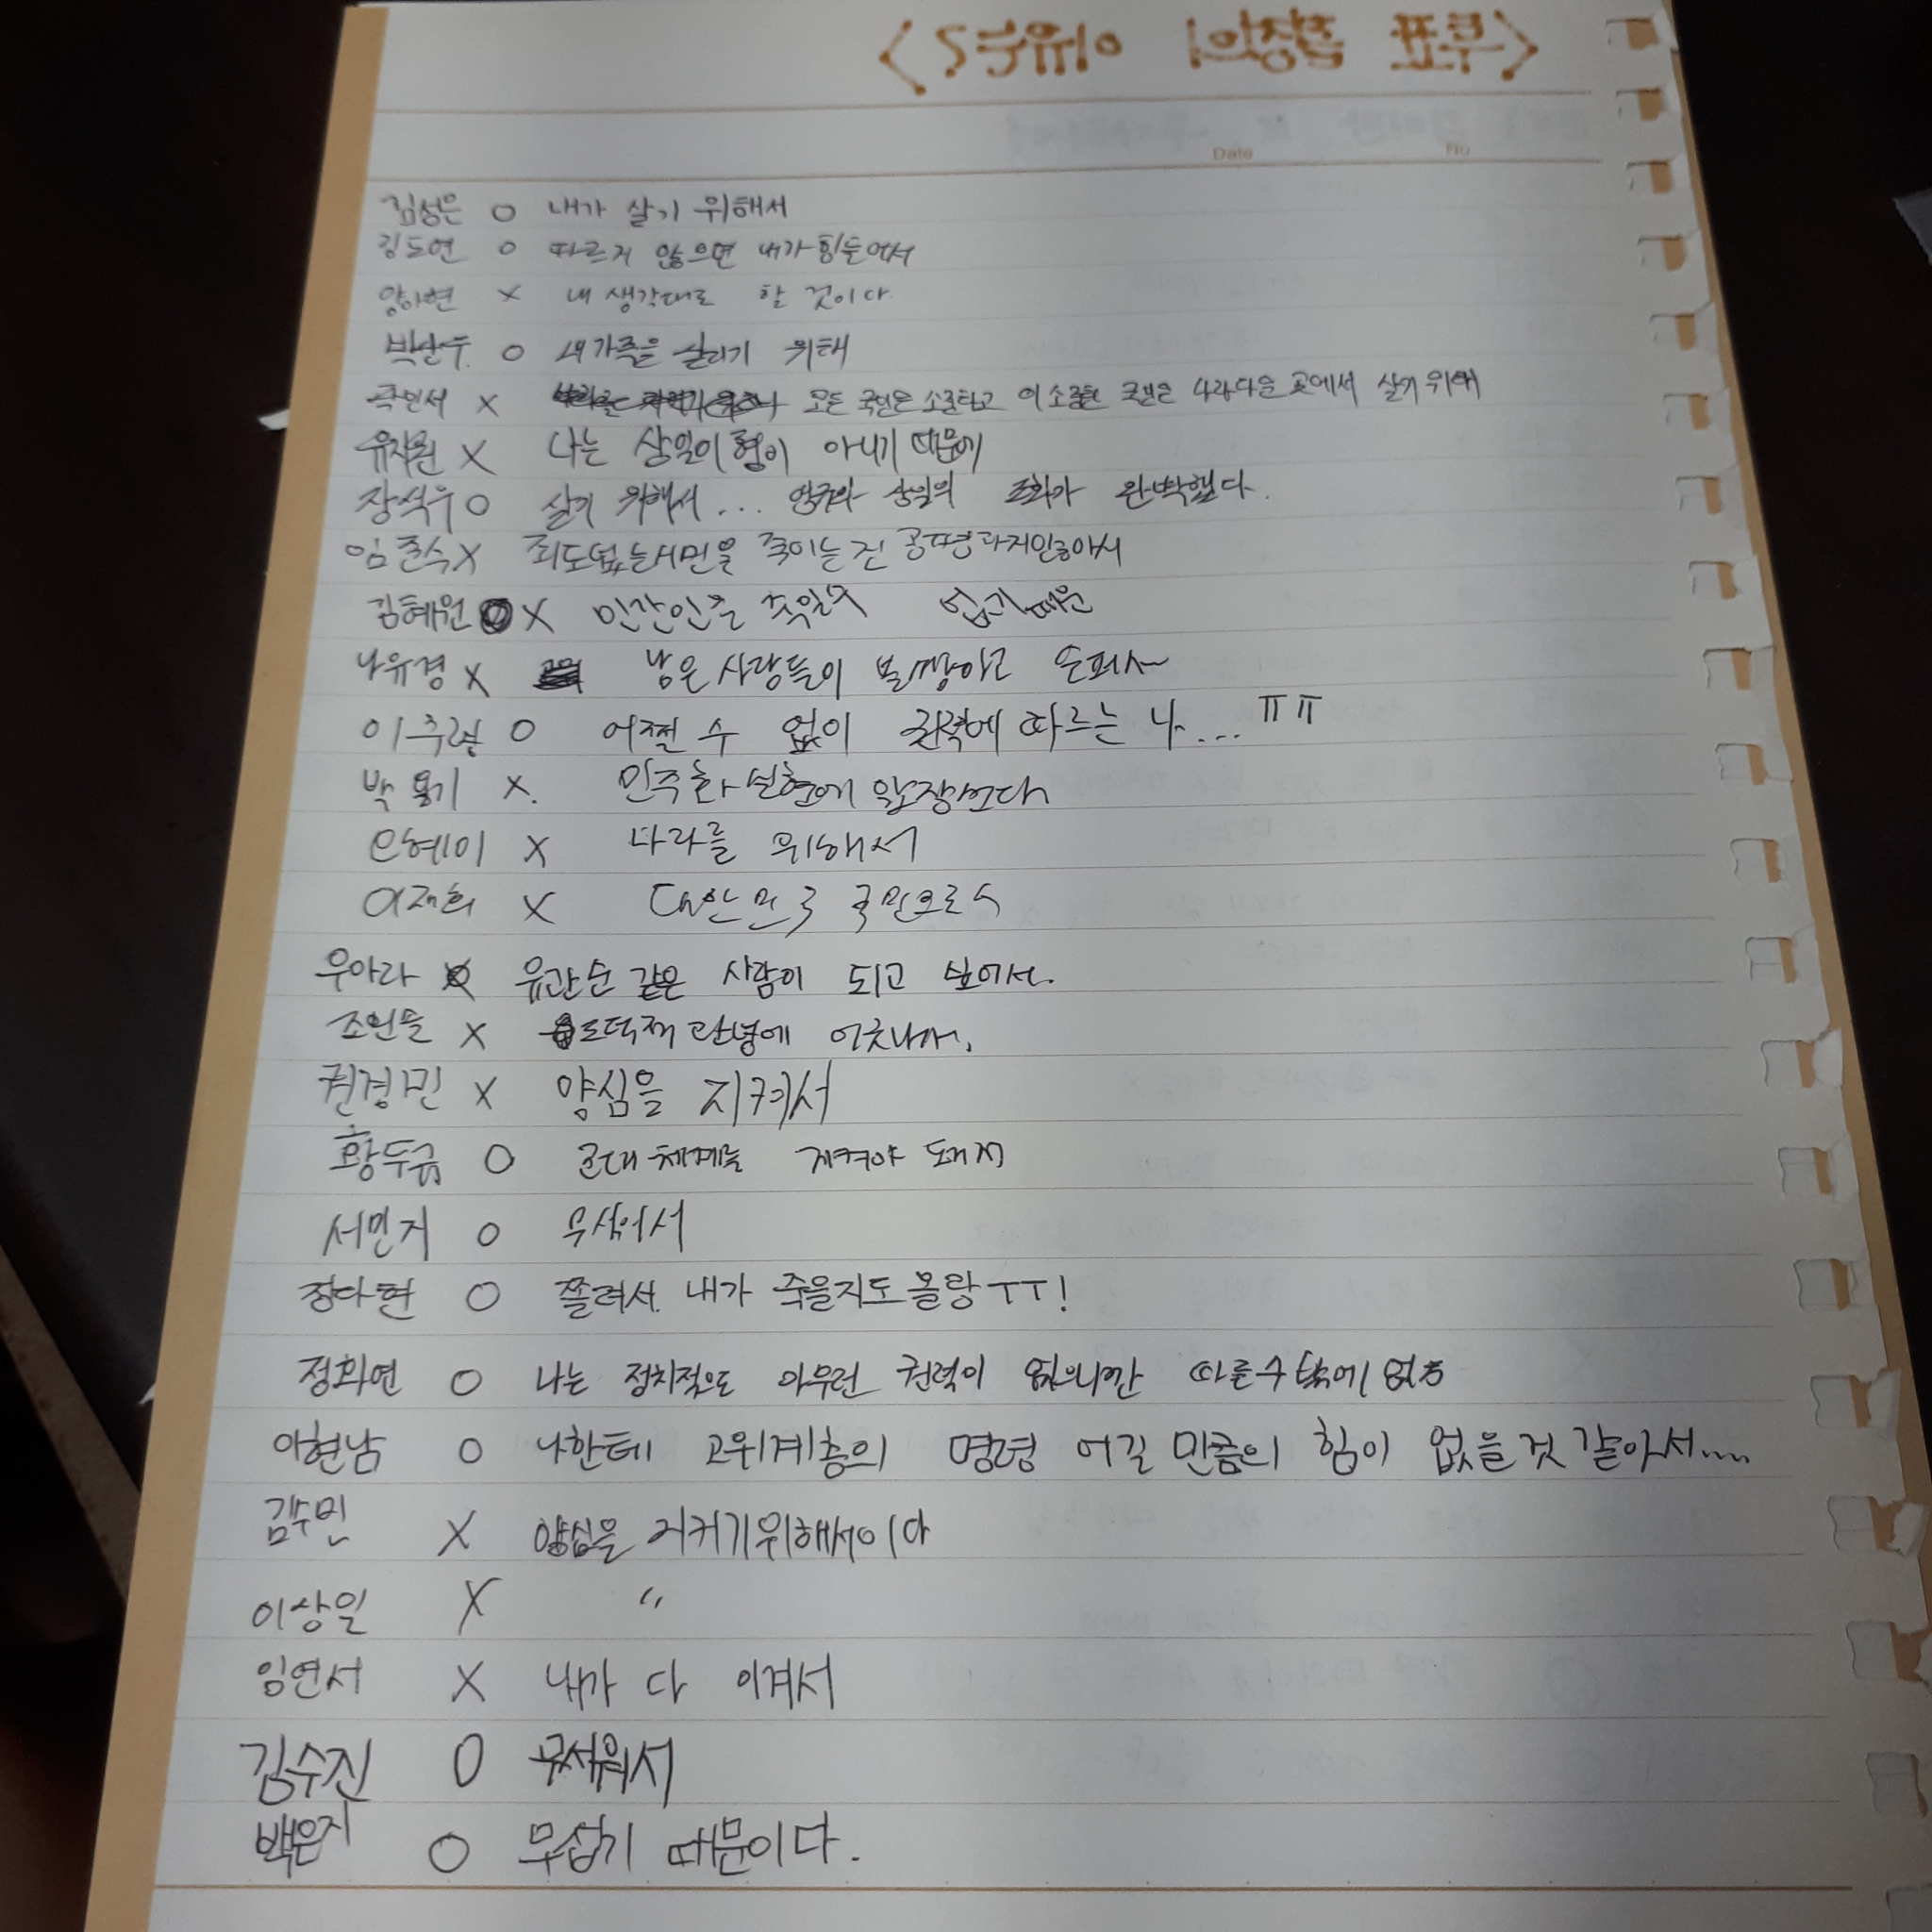 <투표 종황의 이유는>
Date No
김성은 O 내가 살기 위해서
김도연 O 따르지 않으면 내가 힘들어서
양하현 X 내 생각대로 할 것이다
박산두 O 내가족을 살리기 위해
곽민서 X 모든 국민은 소중하고 이 소중한 은 나라다운 곳에서 살기 위해
유지원 X 나는 상일이형이 아니기 때문에
장석우 O 살기 위해서... 상일의 조화가 완벽했다.
임준수 X 죄도없는시민을 죽이는건
김혜원 X 민간인을 죽일수 없기때문
나유경 X 남은 사람들이 불쌍하고 슬퍼서
이주령 O 어쩔 수 없이 권력에 따르는 나.... ㅠㅠ
박 용기 X. 민주화실현에 앞장선다
은혜이 X 나라를 위해서
이재희 X 대한민국 국민으로서
우아라 X 유관순 같은 사람이 되고 싶어서.
조인들 X 도덕적 관념에 어긋나서.
권경민 X 양심을 지켜서
황두규 O 군대 체계를 지켜야 돼지
서민지 O 무섭어서
정다현 O 쫄려서. 내가 죽을지도 몰랑ㅜㅜ!
정희연 O 나는 정치적으로 아무런 권력이 없으니깐 따를수 밖에 없음
이현남 O 나한테 고위계층의 명령 어길 만큼의 힘이 없을것 같아서....
김수민 X 양심을 지키기위해서이다
이상일 X 〃
임연서 X 내가 다 이겨서
김수진 O 무서워서
백은지 O 무섭기 때문이다.